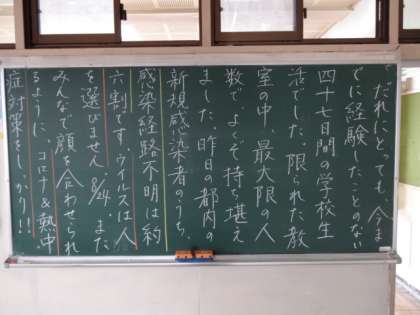 だれにとっても、今ま
でに経験したことのない
四十七日間の学校生
活でした。限られた教
室の中、最大限の人
数で、よくぞ持ち堪え
ました。昨日の都内の
新規感染者のうち、
感染経路不明は約
六割です。ウイルスは人
を選びません 8/24 また
みんなで顔を合わせられ
るように、コロナ&熱中
症対策をしっかり!!